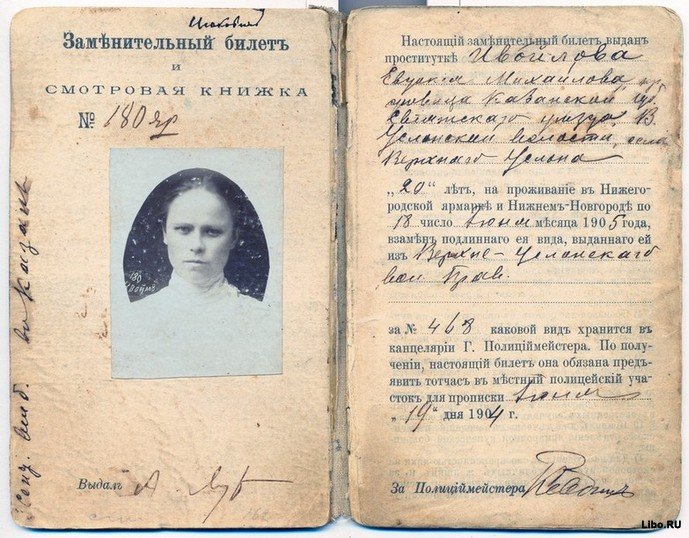 Замѣнительный билетъ
и
СМОТРОВАЯ КНИЖКА
№ 180 яр
180
Выдалъ
Настоящій замѣнительный билетъ выданъ
проституткѣ Ивойлова
Евдокія Михайлова, кр
Казанской губ.
Свіяжскаго уѣзда, В.
Услонской волости, села
Верхняго Услона
„20“ лѣтъ, на проживаніе въ Нижего-
родской ярмаркѣ и Нижнемъ-Новгородѣ по
18 число іюня мѣсяца 1905 года,
взамѣнъ подлиннаго ея вида, выданнаго ей
изъ Верхне-Услонскаго
вол. Прав.
за № 468 каковой видъ хранится въ
канцеляріи Г. Полиціймейстера. По полу-
ченіи, настоящій билетъ она обязана предъ-
явить тотчасъ въ мѣстный полицейскій уча-
стокъ для прописки іюня
„19“ дня 1904 г.
За Полиціймейстера
Libo.RU